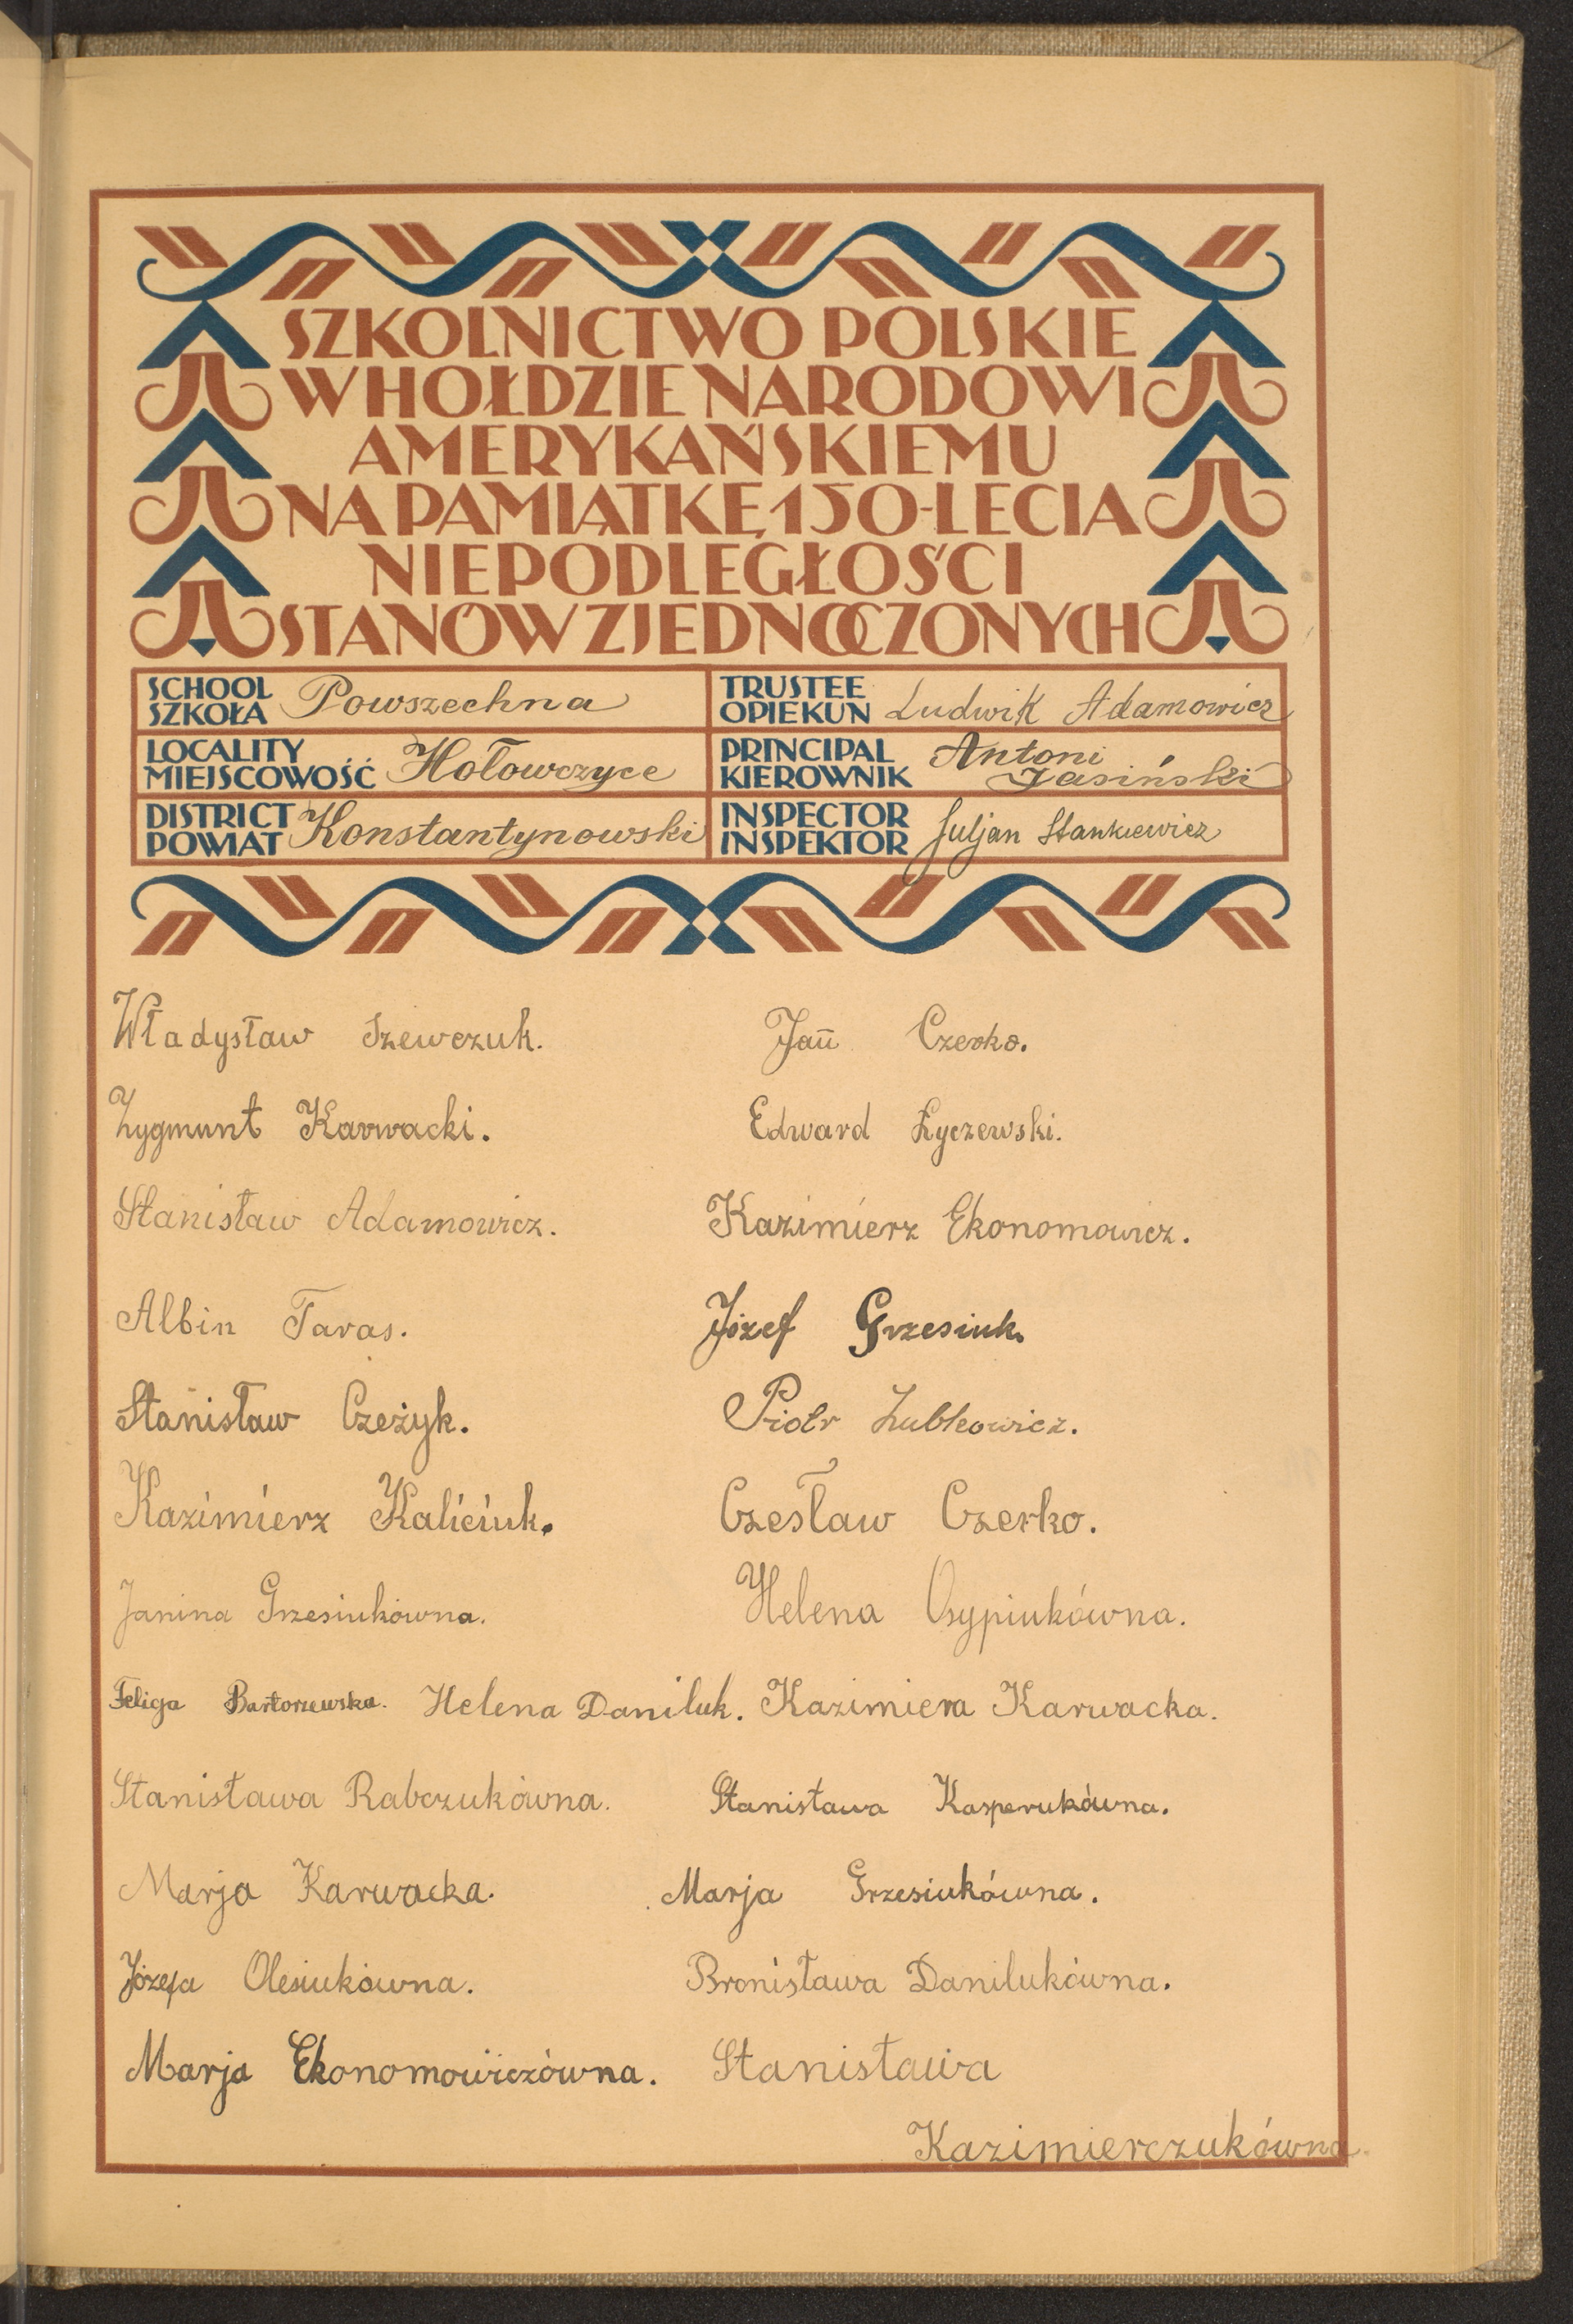 SZKOLNICTWO POLSKIE
W HOŁDZIE NARODOWI
AMERYKAŃSKIEMU
NA PAMIĄTKĘ 150-LECIA
NIEPODLEGŁOŚCI
STANÓW ZJEDNOCZONYCH
SCHOOL
SZKOŁA Powszechna
TRUSTEE
OPIEKUN Ludwik Adamowicz
LOCALITY
MIEJSCOWOŚĆ Hołowczyce
PRINCIPAL
KIEROWNIK Antoni
Jasiński
DISTRICT
POWIAT Konstantynowski
INSPECTOR
INSPEKTOR Juljan Stankiewicz
Władysław Szewczuk. Jan Czerko.
Zygmunt Karwacki. Edward Łyczewski.
Stanisław Adamowicz. Kazimierz Ekonomowicz.
Albin Taras. Józef Grzesiuk.
Stanisław Czeżyk. Piotr Zubkowicz.
Kazimierz Kaliciuk. Czesław Czerko.
Janina Grzesiukówna. Helena Osypiukówna.
Feliga Bartoszewska. Helena Daniluk. Kazimiera Karwacka.
Stanisława Rabczukówna. Stanisława Kasperukówna.
Marja Karwacka. Marja Grzesiukówna.
Józefa Olesiukówna. Bronisława Danilukówna.
Marja Ekonomowiczówna. Stanisława
Kazimierczukówna.